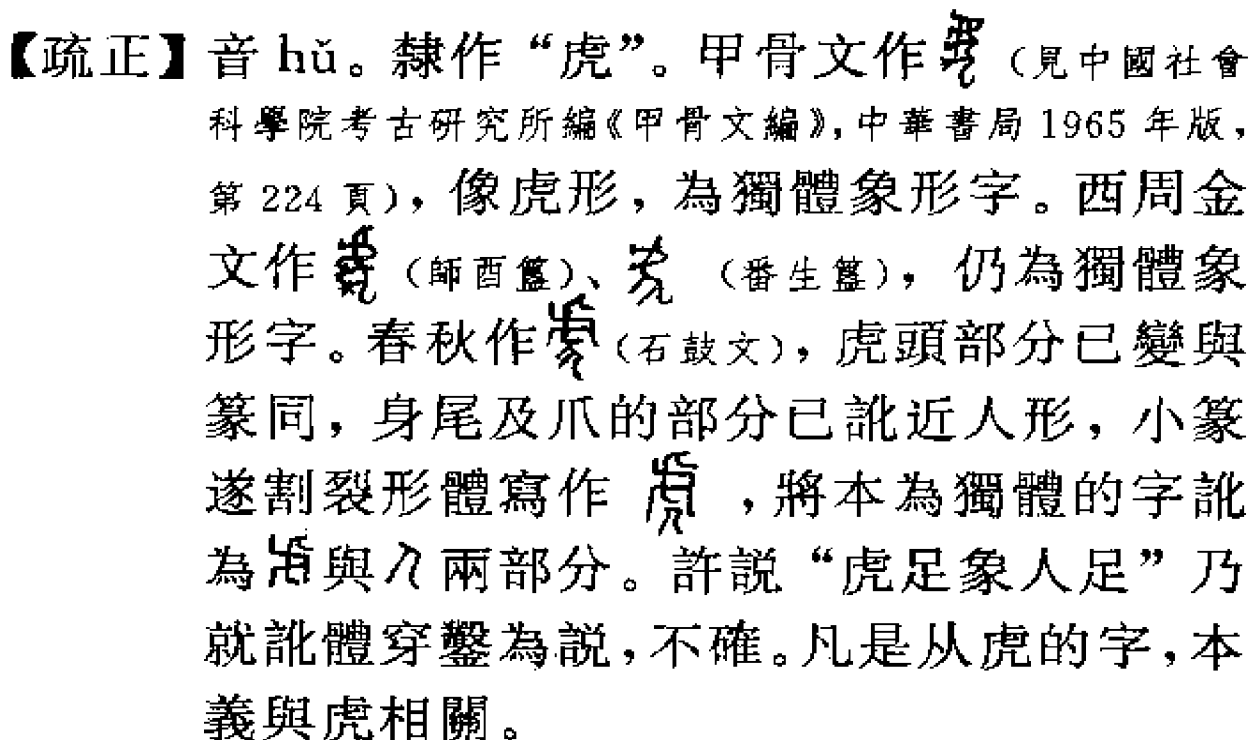 【疏正】音hǔ。隸作“虎”。甲骨文作（見中國社會
科學院考古研究所編《甲骨文編》，中華書局1965年版，
第224頁），像虎形，為獨體象形字。西周金
文作（師酉簋）、（番生簋），仍為獨體象
形字。春秋作（石鼓文），虎頭部分已變與
篆同，身尾及爪的部分已訛近人形，小篆
遂割裂形體寫作，將本為獨體的字訛
為與兩部分。許説“虎足象人足”乃
就訛體穿鑿為説，不確。凡是从虎的字，本
義與虎相關。